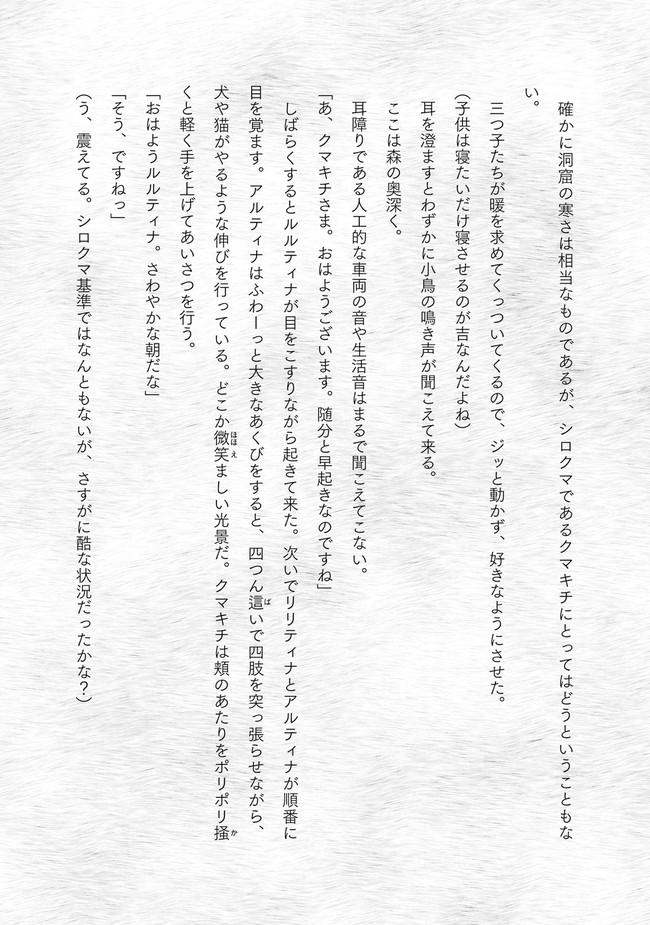 確かに洞窟の寒さは相当なものであるが、シロクマであるクマキチにとってはどうということもな
い。
三つ子たちが暖を求めてくっついてくるので、ジッと動かず、好きなようにさせた。
(子供は寝たいだけ寝させるのが吉なんだよね)
耳を澄ますとわずかに小鳥の鳴き声が聞こえて来る。
ここは森の奥深く。
耳障りである人工的な車両の音や生活音はまるで聞こえてこない。
「あ、クマキチさま。おはようございます。随分と早起きなのですね」
しばらくするとルルティナが目をこすりながら起きて来た。次いでリリティナとアルティナが順番に
目を覚ます。アルティナはふわーっと大きなあくびをすると、四つん這いで四肢を突っ張らせながら、
犬や猫がやるような伸びを行っている。どこか微笑ましい光景だ。クマキチは頬のあたりをポリポリ掻
くと軽く手を上げてあいさつを行う。
「おはようルルティナ。さわやかな朝だな」
「そう、ですねっ」
(う、震えてる。シロクマ基準ではなんともないが、さすがに酷な状況だったかな?)